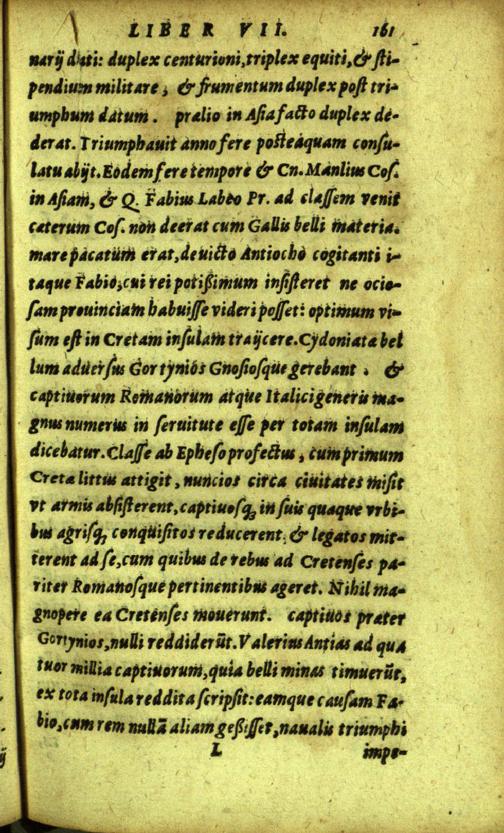 LIBER VII. 161
narij dati: duplex centurioni, triplex equiti, & sti-
pendium militare, & frumentum duplex post tri-
umphum datum. prælio in Asia facto duplex de-
derat. Triumphauit anno fere posteàquam consu-
latu abijt. Eodem fere tempore & Cn. Manlius Cos.
in Asiam, & Q. Fabius Labeo Pr. ad classem venit
cæterum Cos. non deerat cum Gallis belli materia.
mare pacatum erat, deuicto Antiocho cogitanti i-
taque Fabio, cui rei potißimum insisteret ne ocio-
sam prouinciam habuisse videri posset: optimum vi-
sum est in Cretam insulam traijcere. Cydoniatæ bel
lum aduersus Gortynios Gnosiosque gerebant. &
captiuorum Romanorum atque Italici generis ma-
gnus numerus in seruitute esse per totam insulam
dicebatur. Classe ab Epheso profectus, cum primum
Cretæ littus attigit, nuncios circa ciuitates misit
vt armis absisterent, captiuosq; in suis quæque vrbi-
bus agrisq; conquisitos reducerent, & legatos mit-
terent ad se, cum quibus de rebus ad Cretenses pa-
riter Romanosque pertinentibus ageret. Nihil ma-
gnopere ea Cretenses mouerunt. captiuos præter
Gortynios, nulli reddiderũt. Valerius Antias ad qua
tuor millia captiuorum, quia belli minas timuerũt,
ex tota insula reddita scripsit: eamque causam Fa-
bio, cum rem nullã aliam geßisset, naualis triumphi
L impe-